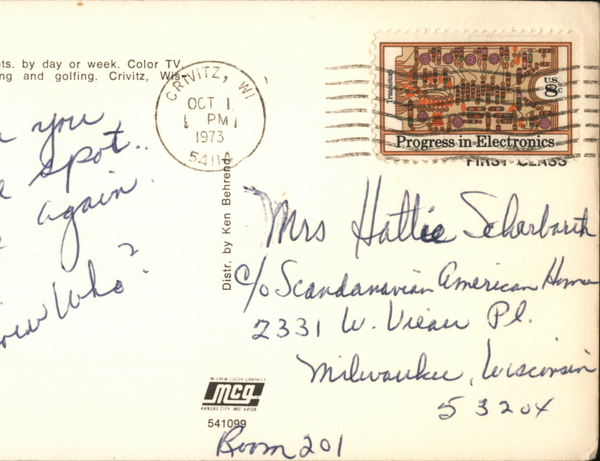 ts. by day or week. Color TV,
ng and golfing. Crivitz, Wis-
you
spot..
again.
Who?
CRIVITZ, WI
OCT 1
PM
1973
54114
Transistors
U.S.
8c
Progress in Electronics
FIRST CLASS
Distr. by Ken Behrend
Mrs Hattie Scharbarth
c/o Scandanavian American Home
2331 W. Vieau Pl.
Milwaukee, Wisconsin
53204
Room 201
McGREW COLOR GRAPHICS
mcg
KANSAS CITY, MO. 64108
541099